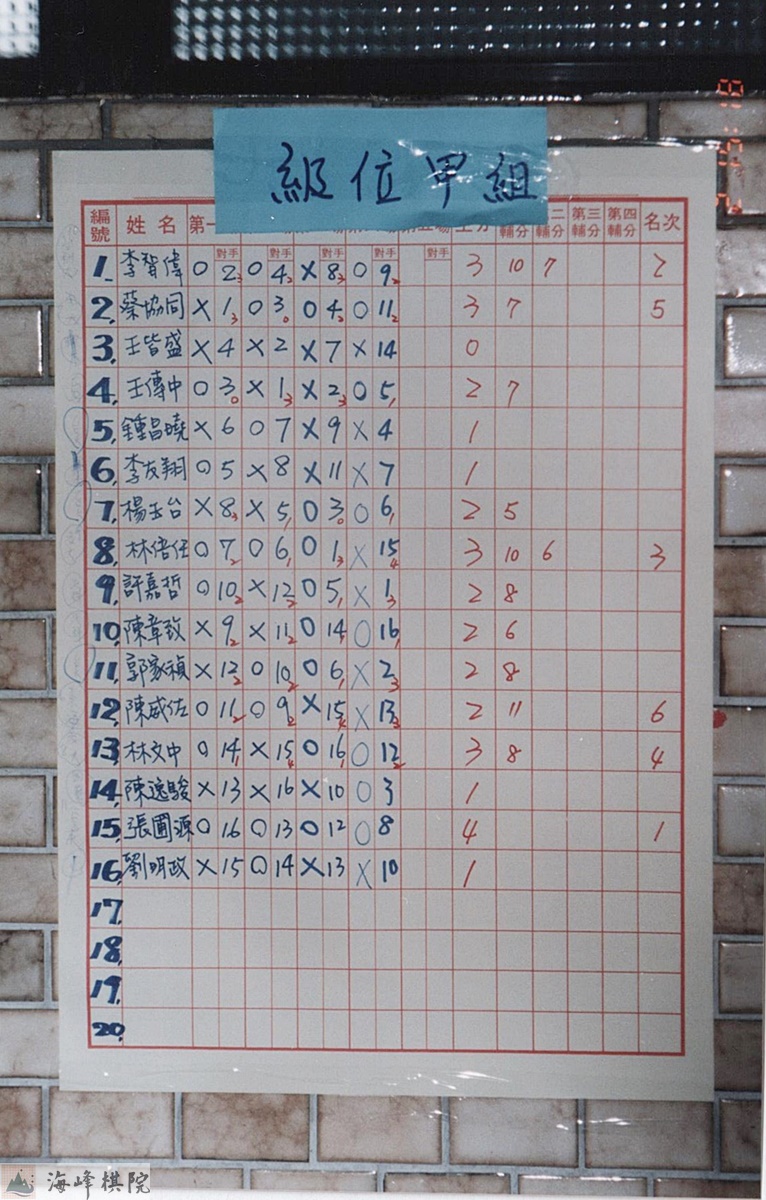 級位甲組
編號 姓名 第一 主分 輔分 二輔分 第三輔分 第四輔分 名次
對手 對手 對手 對手 對手
1. 李智偉 O 2 3 O 4 2 X 8 3 O 9 2 3 10 7 2
2. 蔡協同 X 1 3 O 3 0 O 4 2 O 11 2 3 7 5
3. 王皆盛 X 4 X 2 X 7 X 14 0
4. 王傳中 O 3 0 X 1 3 X 2 3 O 5 1 2 7
5. 鍾昌曉 X 6 O 7 X 9 X 4 1
6. 李友翔 O 5 X 8 X 11 X 7 1
7. 楊玉台 X 8 3 X 5 1 O 3 0 O 6 1 2 5
8. 林倍任 O 7 2 O 6 1 O 1 3 X 15 4 3 10 6 3
9. 許嘉哲 O 10 2 X 12 2 O 5 1 X 1 3 2 8
10. 陳韋致 X 9 2 X 11 2 O 14 1 O 16 1 2 6
11. 郭家禎 X 12 2 O 10 2 O 6 1 X 2 3 2 8
12. 陳威佐 O 11 2 O 9 2 X 15 4 X 13 3 2 11 6
13. 林文中 O 14 1 X 15 4 O 16 1 O 12 2 3 8 4
14. 陳逸駿 X 13 X 16 X 10 O 3 1
15. 張圃源 O 16 O 13 O 12 O 8 4 1
16. 劉明政 X 15 O 14 X 13 X 10 1
17.
18.
19.
20.
海峰棋院